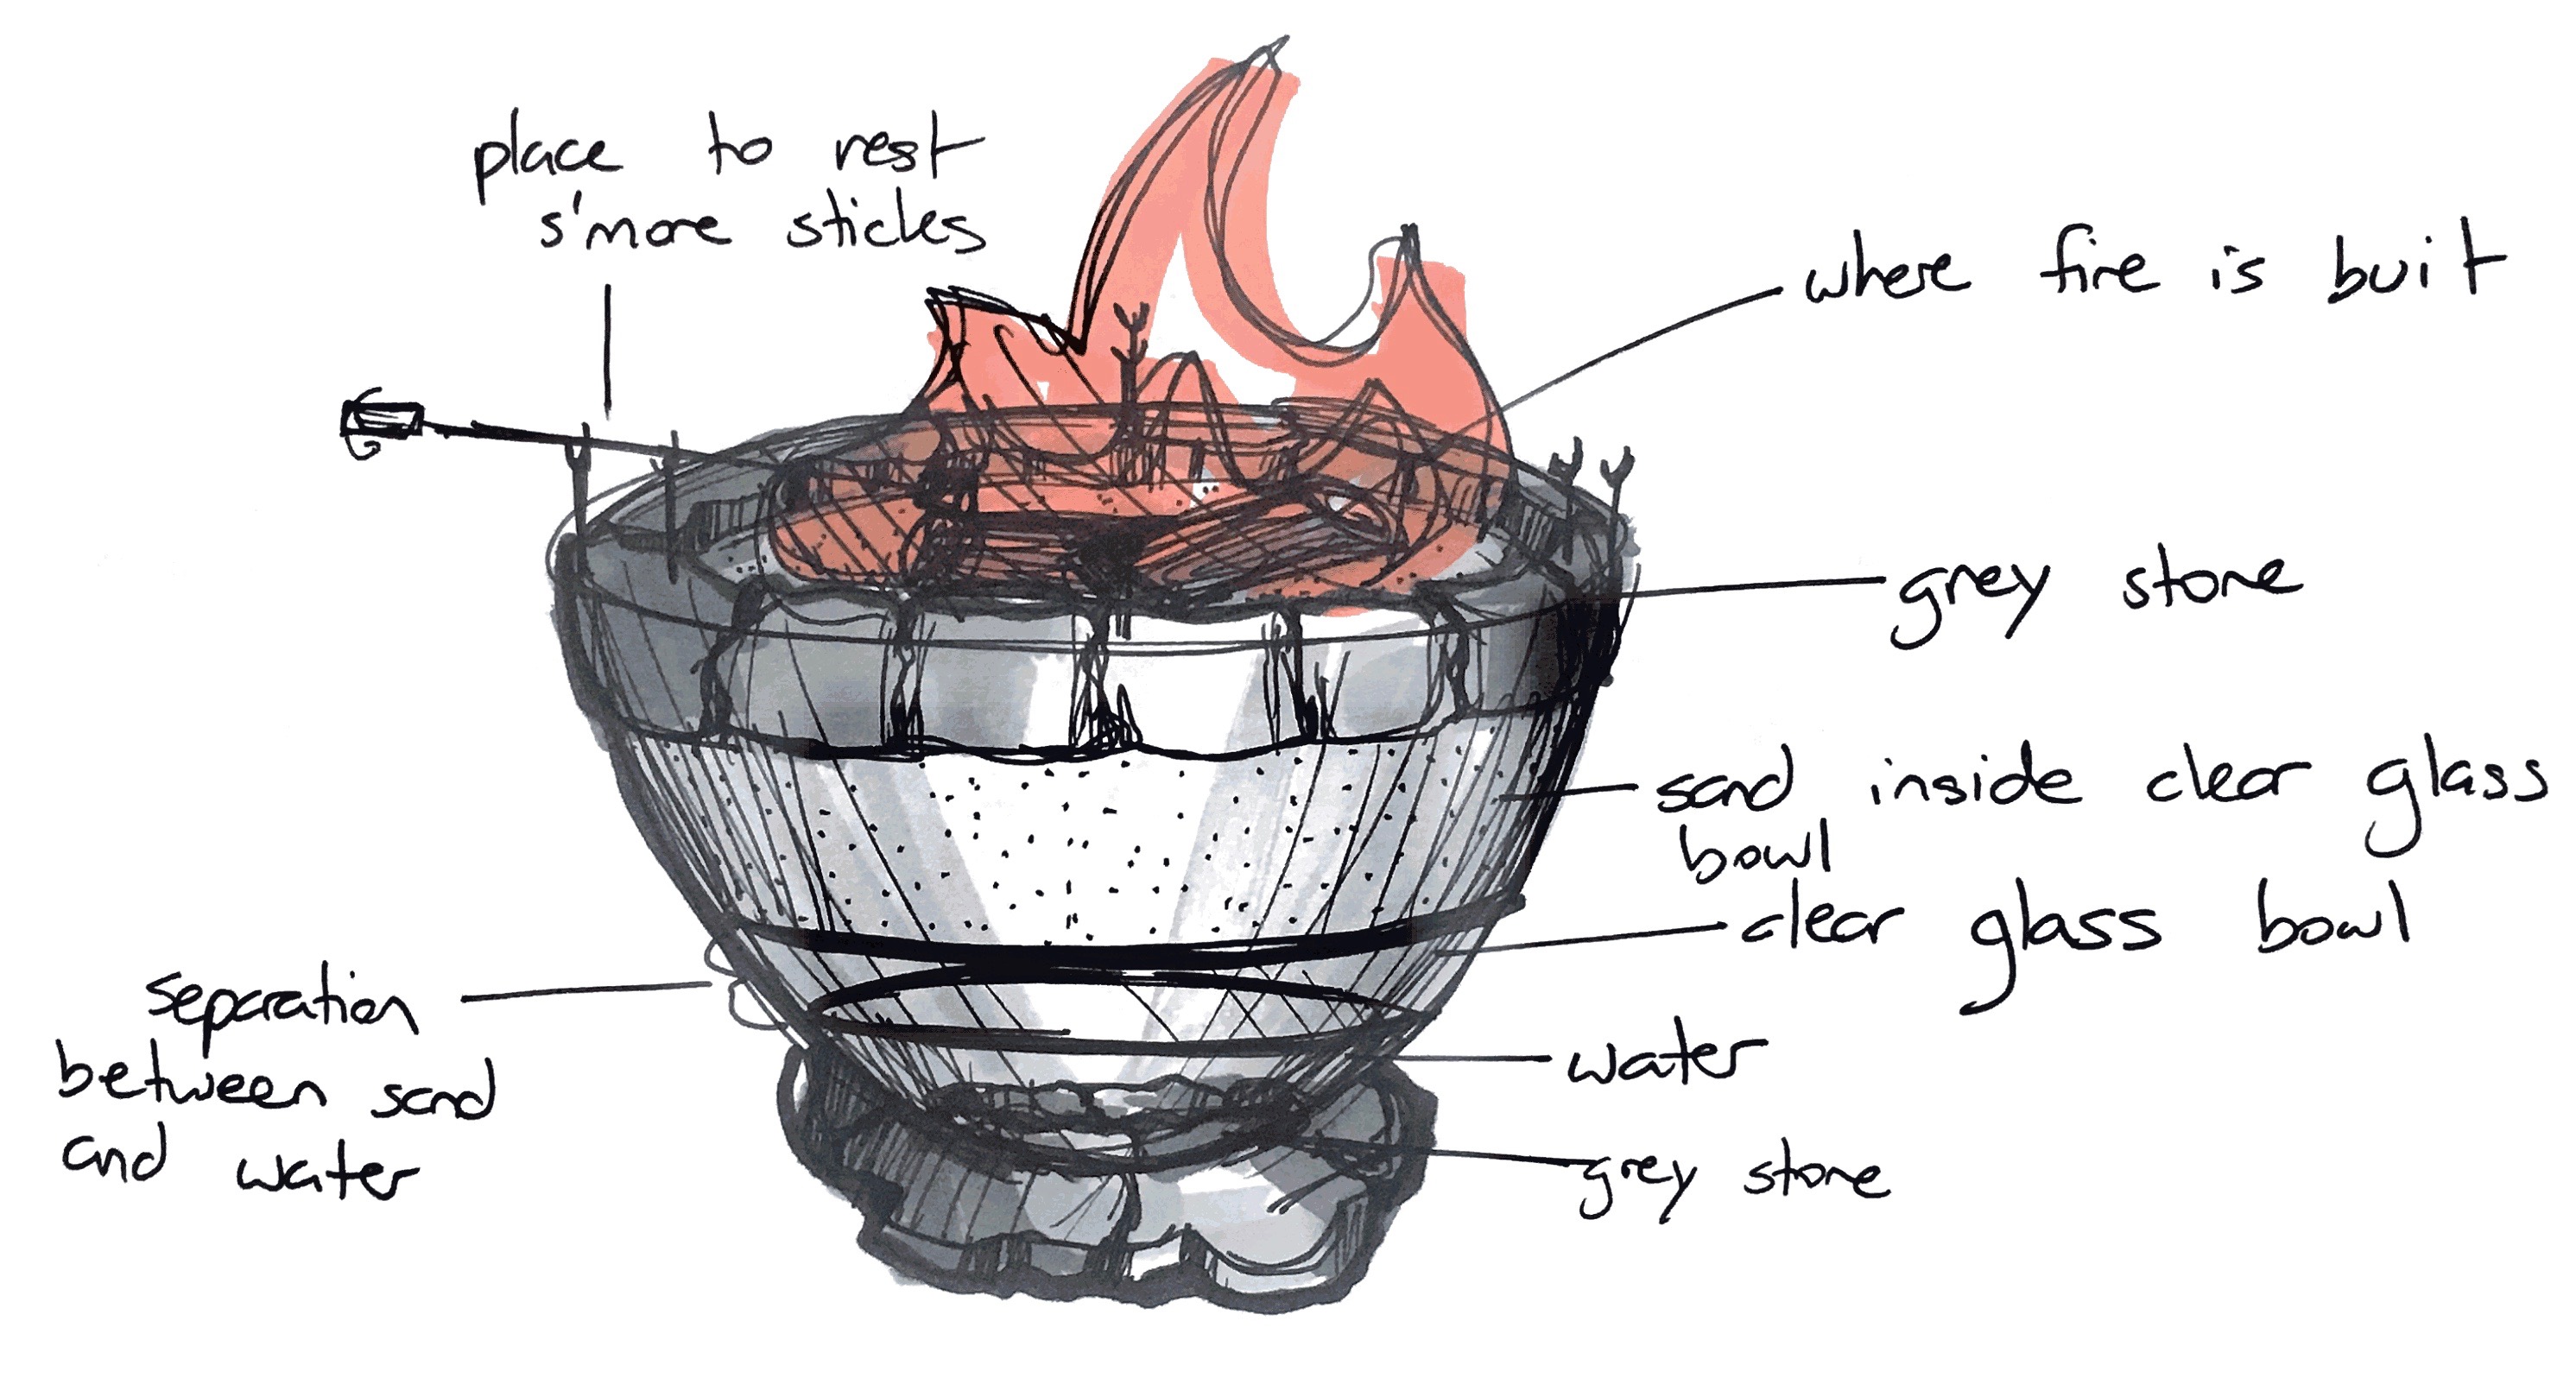 place to rest
s'more sticks
where fire is buit
grey stone
sand inside clear glass
bowl
clear glass bowl
separation
between sand
and water
water
grey stone